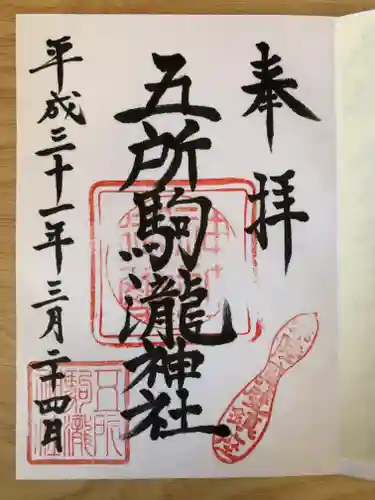 奉拝
五所駒瀧神社
平成三十一年三月二十四月
五所
駒瀧